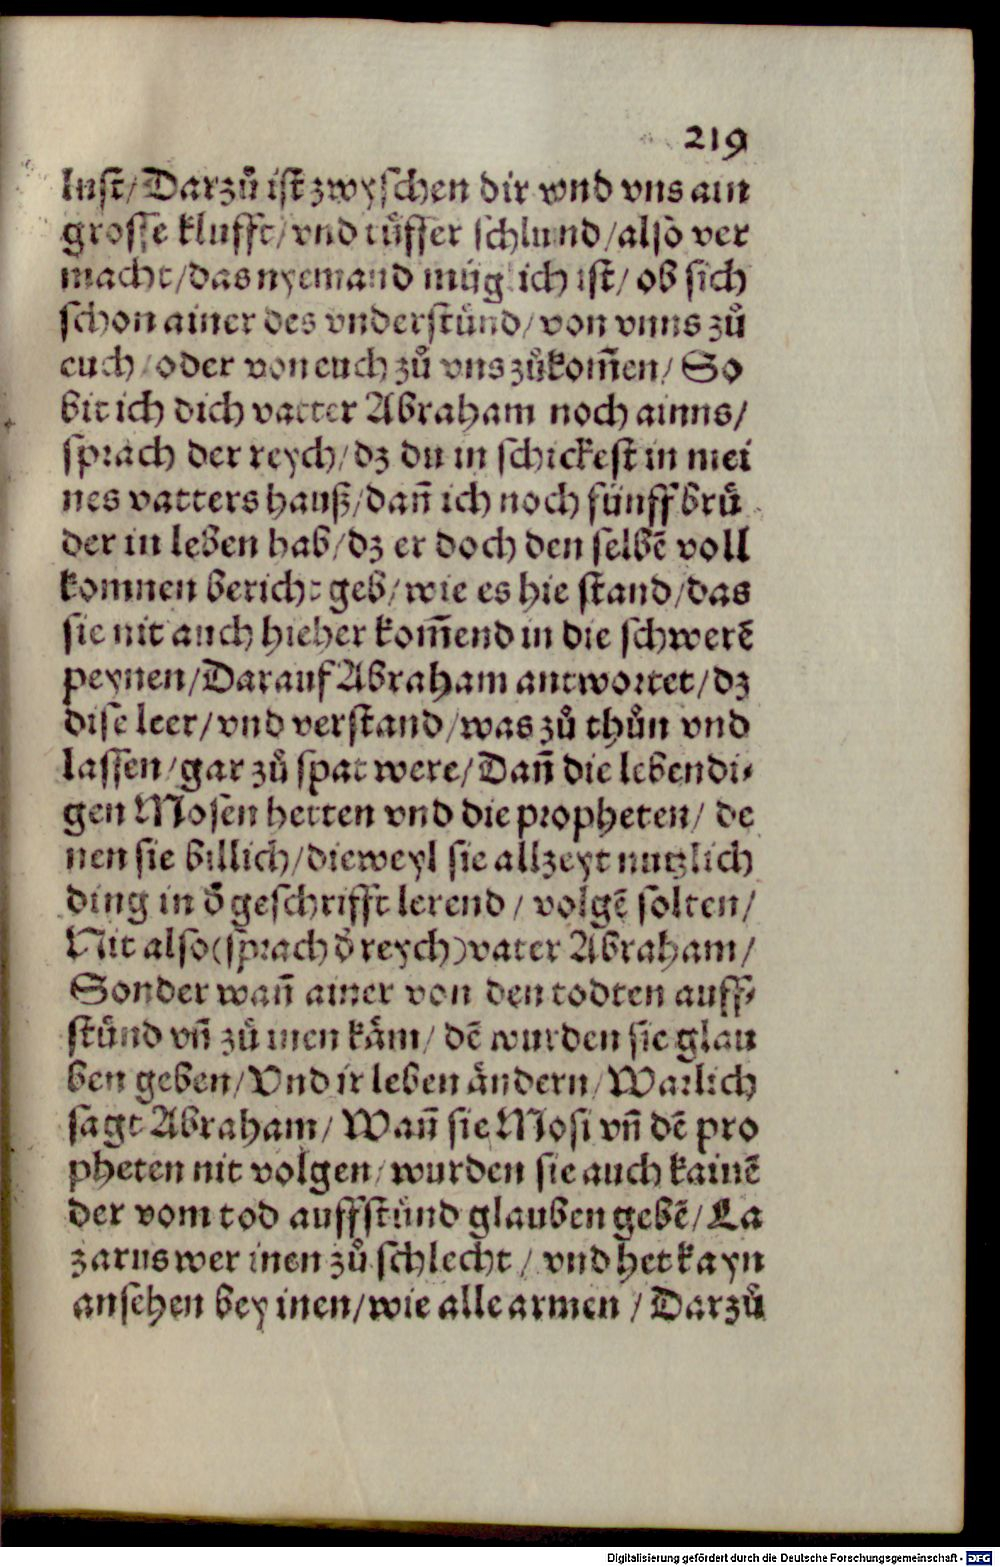 219
lust/ Darzů ist zwyschen dir vnd vns ain
grosse klufft/ vnd tüffer schlund/ also ver
macht/ das nyemand müglich ist/ ob sich
schon ainer des vnderstünd/ von vnns zů
euch/ oder von euch zů vns zůkom̃en/ So
bit ich dich vatter Abraham noch ainns/
sprach der reych/ dz du in schickest in mei
nes vatters hauß/ dañ ich noch fünff brü
der in leben hab/ dz er doch den selbẽ voll
komnen bericht geb/ wie es hie stand/ das
sie nit auch hieher kom̃end in die schwerẽ
peynen/ Darauf Abraham antwortet/ dz
dise leer/ vnd verstand/ was zů thůn vnd
lassen/ gar zů spat were/ Dañ die lebendi-
gen Mosen hetten vnd die propheten/ de
nen sie billich/ dieweyl sie allzeyt nutzlich
ding in d̕ geschrifft lerend/ volgẽ solten/
Nit also (sprach d̕ reych) vater Abraham/
Sonder wañ ainer von den todten auff-
stünd vñ zů inen käm/ dẽ wurden sie glau
ben geben/ Vnd ir leben ändern/ Warlich
sagt Abraham/ Wañ sie Mosi vñ dẽ pro
pheten nit volgen/ wurden sie auch kainẽ
der vom tod auffstünd glauben gebẽ/ La
zarus wer inen zů schlecht/ vnd het kayn
ansehen bey inen/ wie alle armen/ Darzů
Digitalisierung gefördert durch die Deutsche Forschungsgemeinschaft - DFG